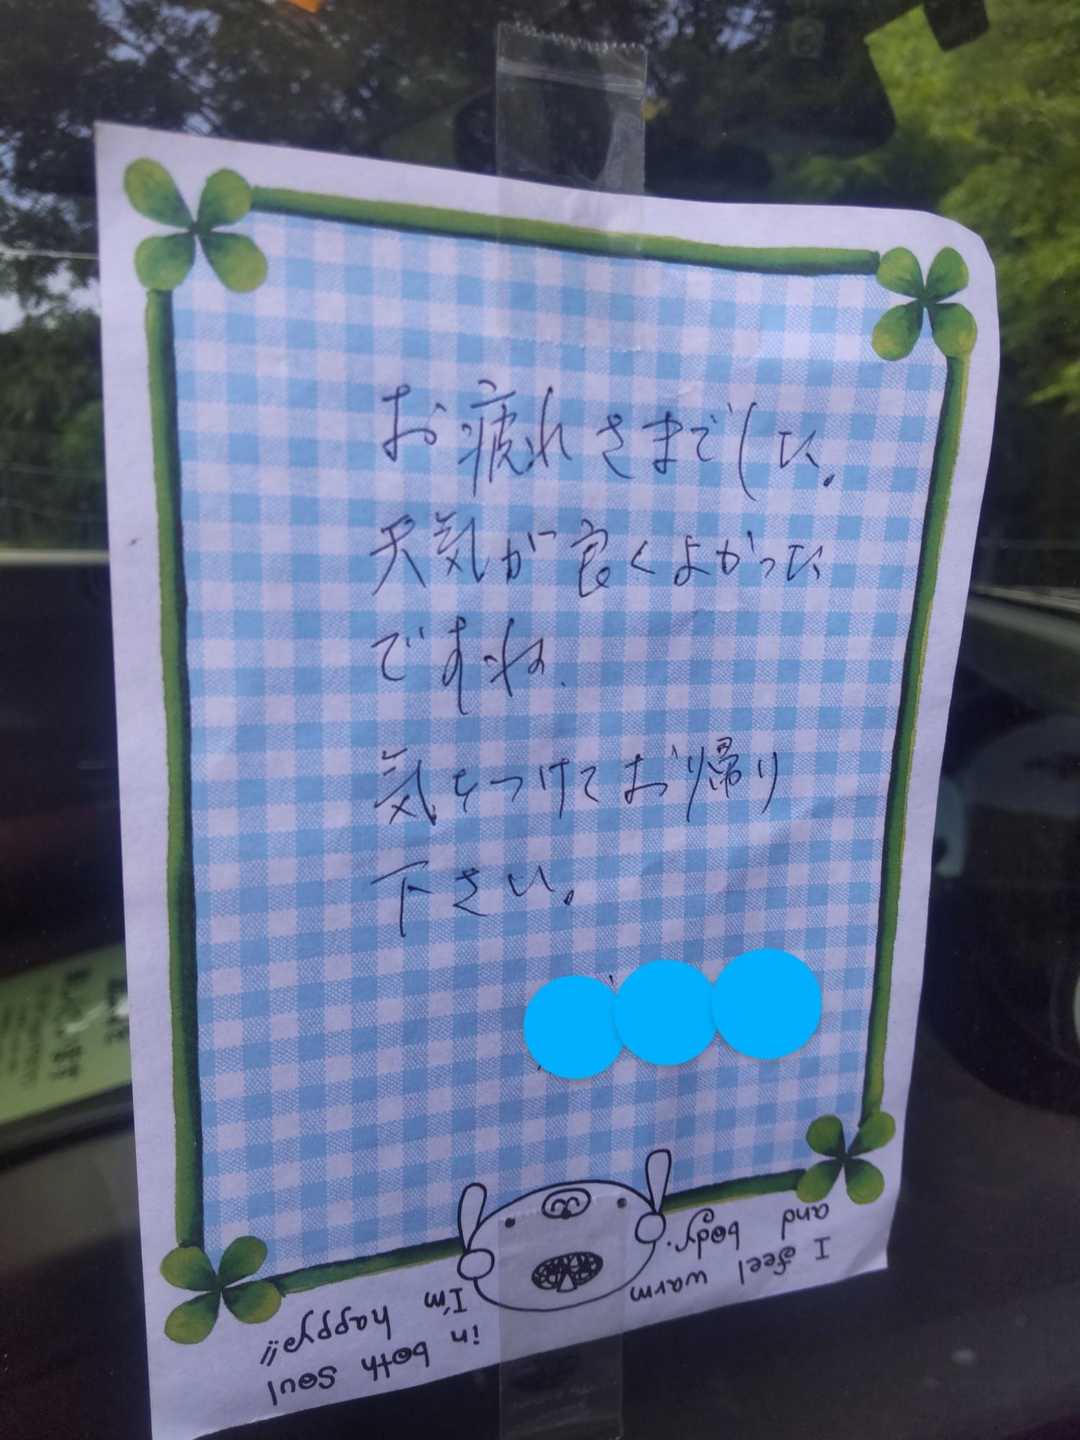 お疲れさまでした。
天気が良くよかった
ですね.
気をつけてお帰り
下さい。
I feel warm
and body.
I'm
happy!!
in both soul